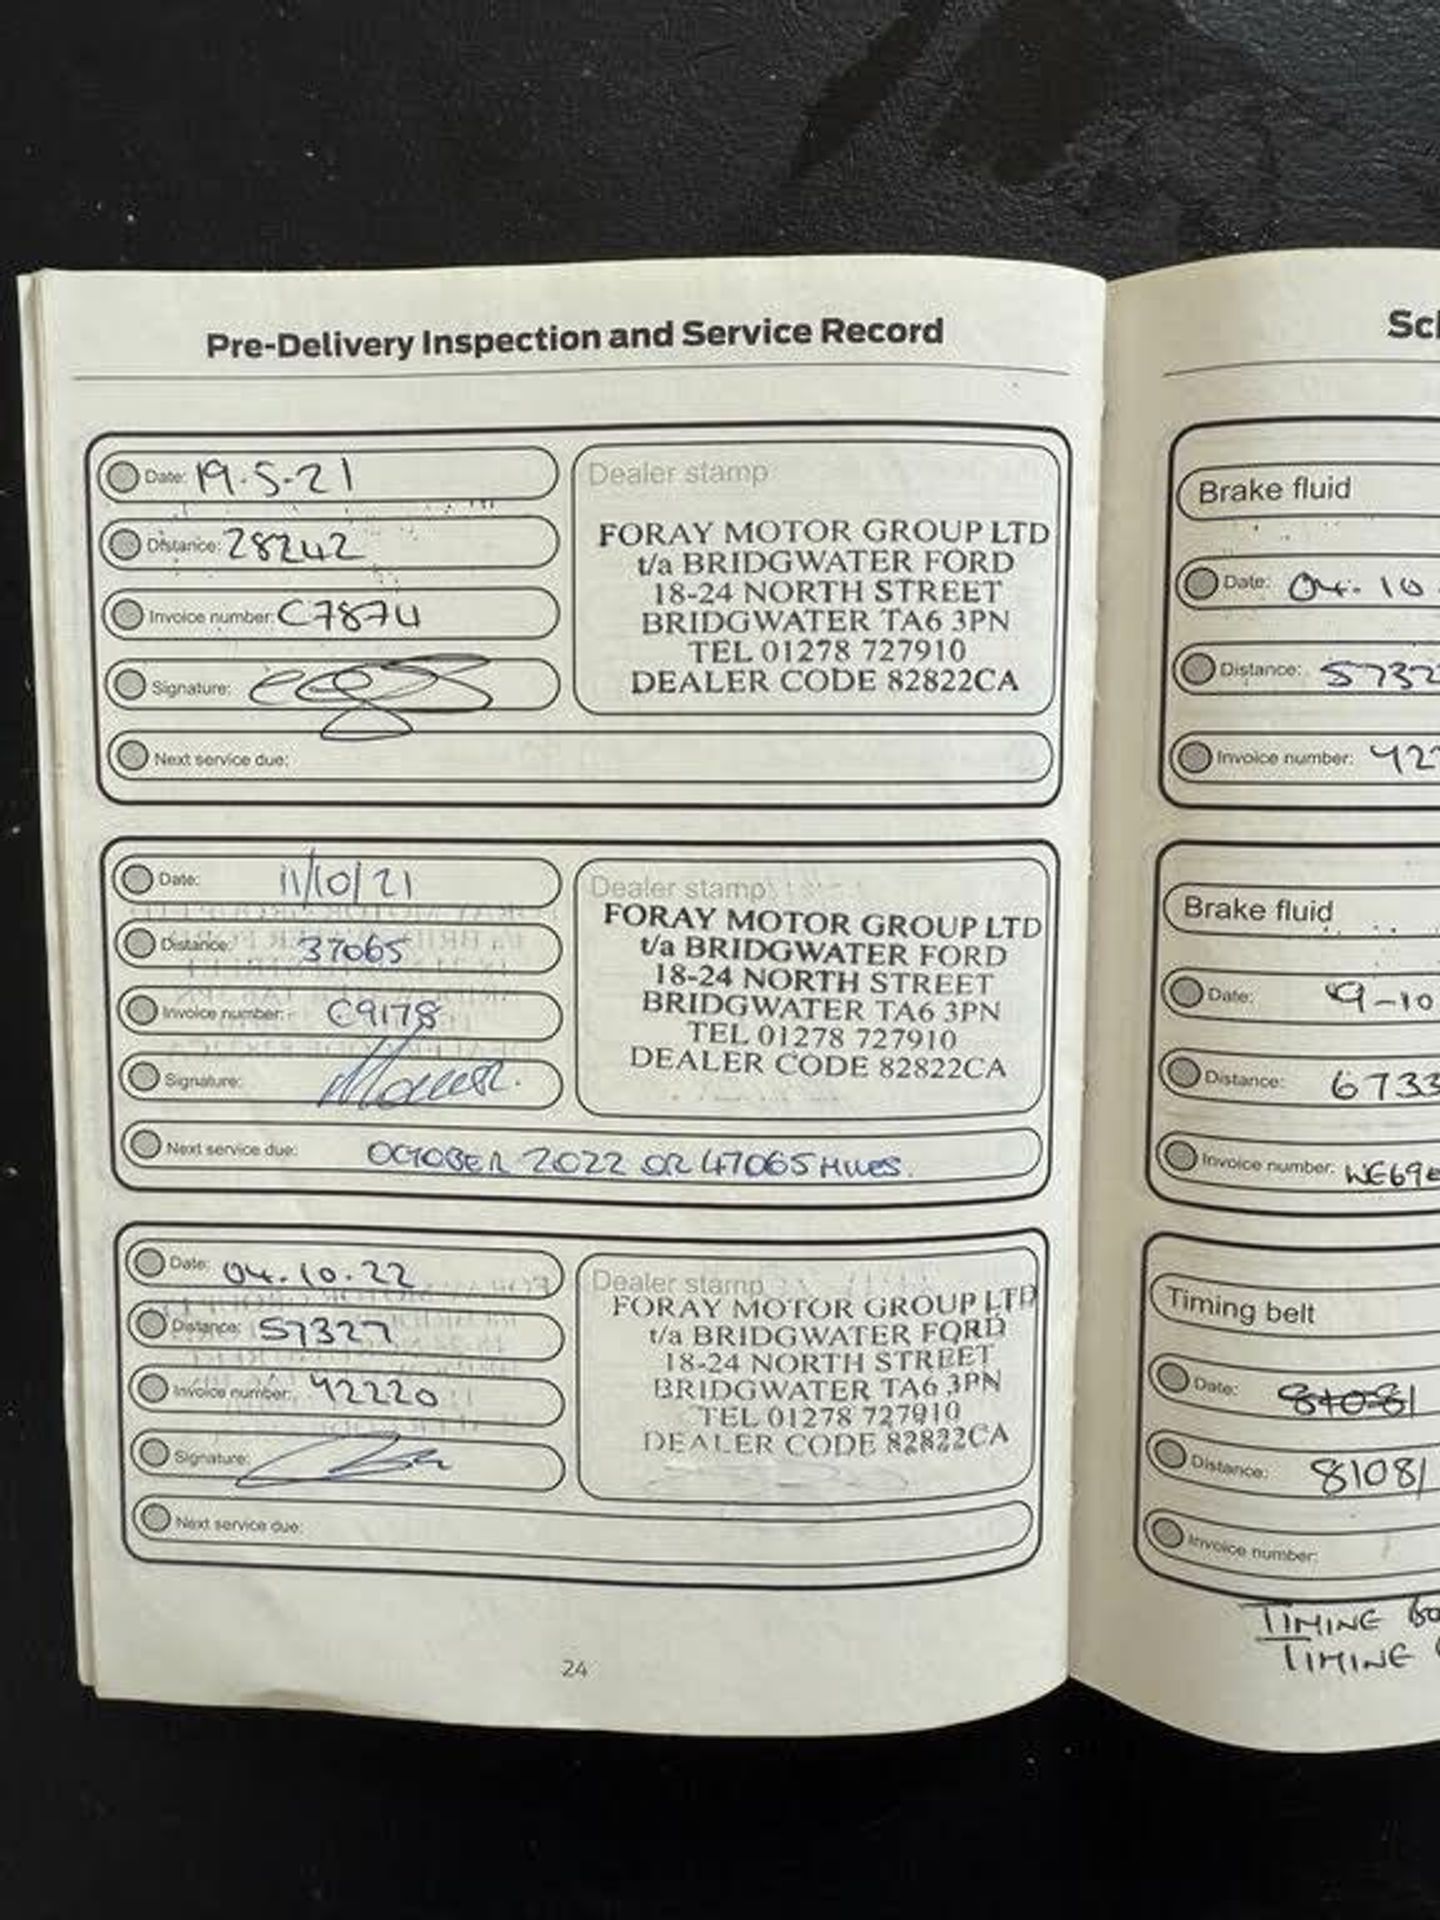 Pre-Delivery Inspection and Service Record
Date: 19-5-21
Distance: 28242
Invoice number: C7874
Signature:
Next service due:
Dealer stamp
FORAY MOTOR GROUP LTD
t/a BRIDGWATER FORD
18-24 NORTH STREET
BRIDGWATER TA6 3PN
TEL 01278 727910
DEALER CODE 82822CA
Date: 11/10/21
Distance: 37065
Invoice number: C9178
Signature:
Next service due: OCTOBER 2022 OR 47065 MILES.
Dealer stamp
FORAY MOTOR GROUP LTD
t/a BRIDGWATER FORD
18-24 NORTH STREET
BRIDGWATER TA6 3PN
TEL 01278 727910
DEALER CODE 82822CA
Date: 04.10.22
Distance: 57327
Invoice number: 42220
Signature:
Next service due:
Dealer stamp
FORAY MOTOR GROUP LTD
t/a BRIDGWATER FORD
18-24 NORTH STREET
BRIDGWATER TA6 3PN
TEL 01278 727910
DEALER CODE 82822CA
24
Brake fluid
Date: 04.10.
Distance: 5732
Invoice number: 422
Brake fluid
Date: 9-10
Distance: 6733
Invoice number: WE69
Timing belt
Date:
Distance: 81081
Invoice number:
TIMING
TIMING